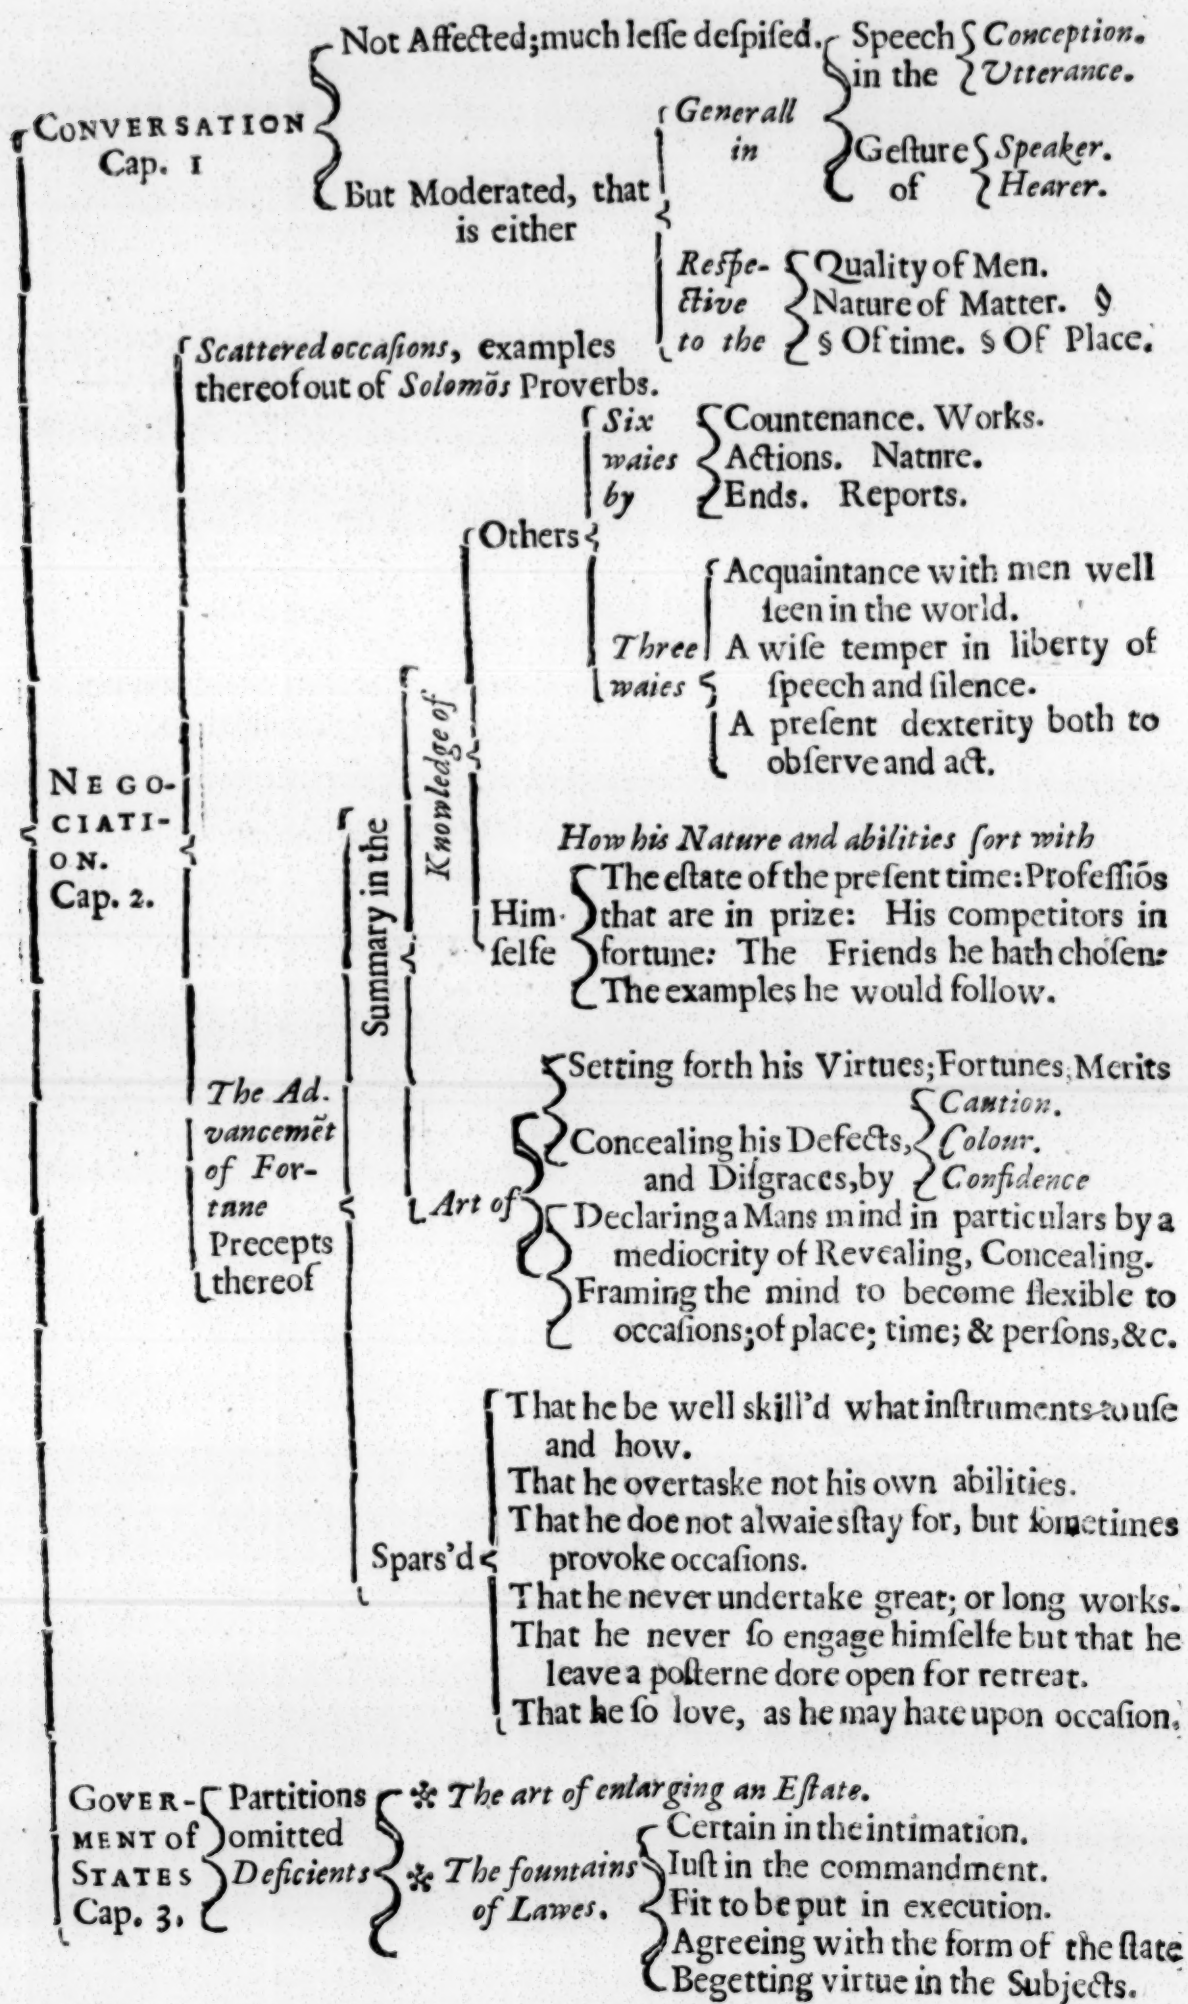 Not Affected; much leſſe deſpiſed.
Speech
in the
Conception.
Utterance.
CONVERSATION
Cap. 1
Generall
in
Geſture
of
Speaker.
Hearer.
But Moderated, that
is either
Reſpe-
ctive
to the
Quality of Men.
Nature of Matter. §
§ Of time. § Of Place.
Scattered occaſions, examples
thereof out of Solomõs Proverbs.
Six
waies
by
Countenance. Works.
Actions. Natnre.
Ends. Reports.
Others
Three
waies
Acquaintance with men well
ſeen in the world.
A wiſe temper in liberty of
ſpeech and ſilence.
A preſent dexterity both to
obſerve and act.
NEGO-
CIATI-
ON.
Cap. 2.
Summary in the
Knowledge of
How his Nature and abilities ſort with
Him-
ſelfe
The eſtate of the preſent time: Profeſſiõs
that are in prize: His competitors in
fortune: The Friends he hath choſen:
The examples he would follow.
The Ad-
vancemẽt
of For-
tune
Precepts
thereof
Art of
Setting forth his Virtues; Fortunes, Merits
Concealing his Defects,
and Diſgraces, by
Caution.
Colour.
Confidence
Declaring a Mans mind in particulars by a
mediocrity of Revealing, Concealing.
Framing the mind to become flexible to
occaſions; of place; time; & perſons, &c.
Spars'd
That he be well skill'd what inſtruments to uſe
and how.
That he overtaske not his own abilities.
That he doe not alwaies ſtay for, but ſometimes
provoke occaſions.
That he never undertake great; or long works.
That he never ſo engage himſelfe but that he
leave a poſterne dore open for retreat.
That he ſo love, as he may hate upon occaſion.
GOVER-
MENT of
STATES
Cap. 3.
Partitions
omitted
Deficients
* The art of enlarging an Eſtate.
* The fountains
of Lawes.
Certain in the intimation.
Iuſt in the commandment.
Fit to be put in execution.
Agreeing with the form of the ſtate
Begetting virtue in the Subjects.